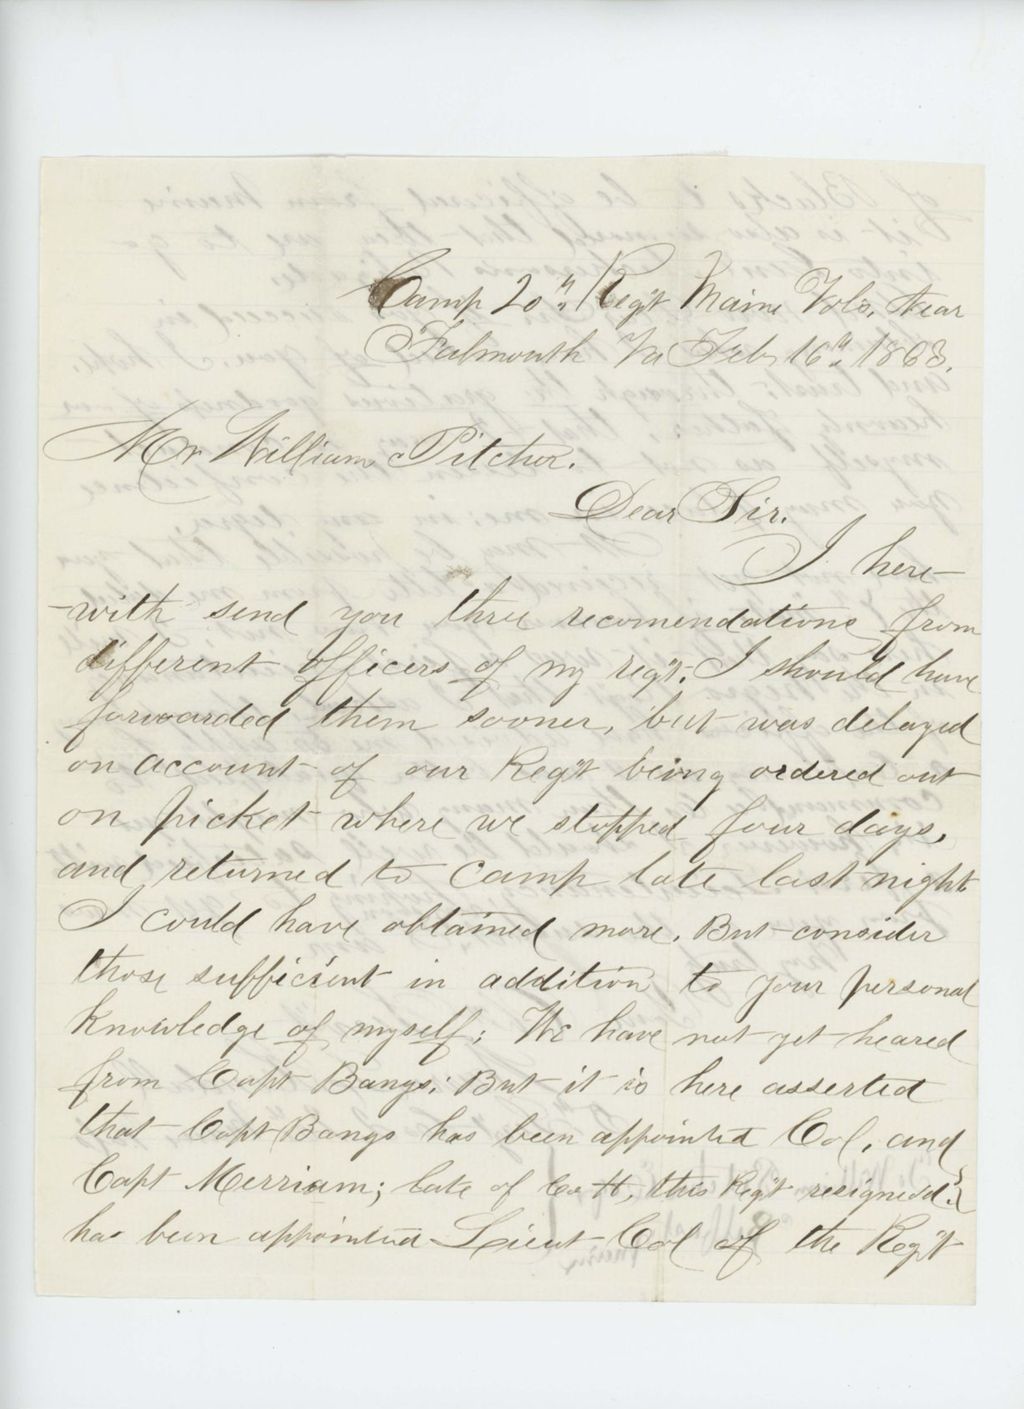 Camp 20th Reg't Maine Vols. Near
Falmouth Va Feb 16th 1863.
Mr William Pitcher.
Dear Sir.
I here-
-with send you three recomendations from
different officers of my reg't. I should have
forwarded them sooner, but was delayed
on account of our Reg't being ordered out
on picket where we stopped four days,
and returned to camp late last night
I could have obtained more. But consider
those sufficient in addition to your personal
knowledge of myself; We have not yet heared
from Capt Bangs; But it is here asserted
that Capt Bangs has been appointed Col, and
Capt Merriam; late of Co H, this Reg't resigned;
has been appointed Lieut Col of the Reg't